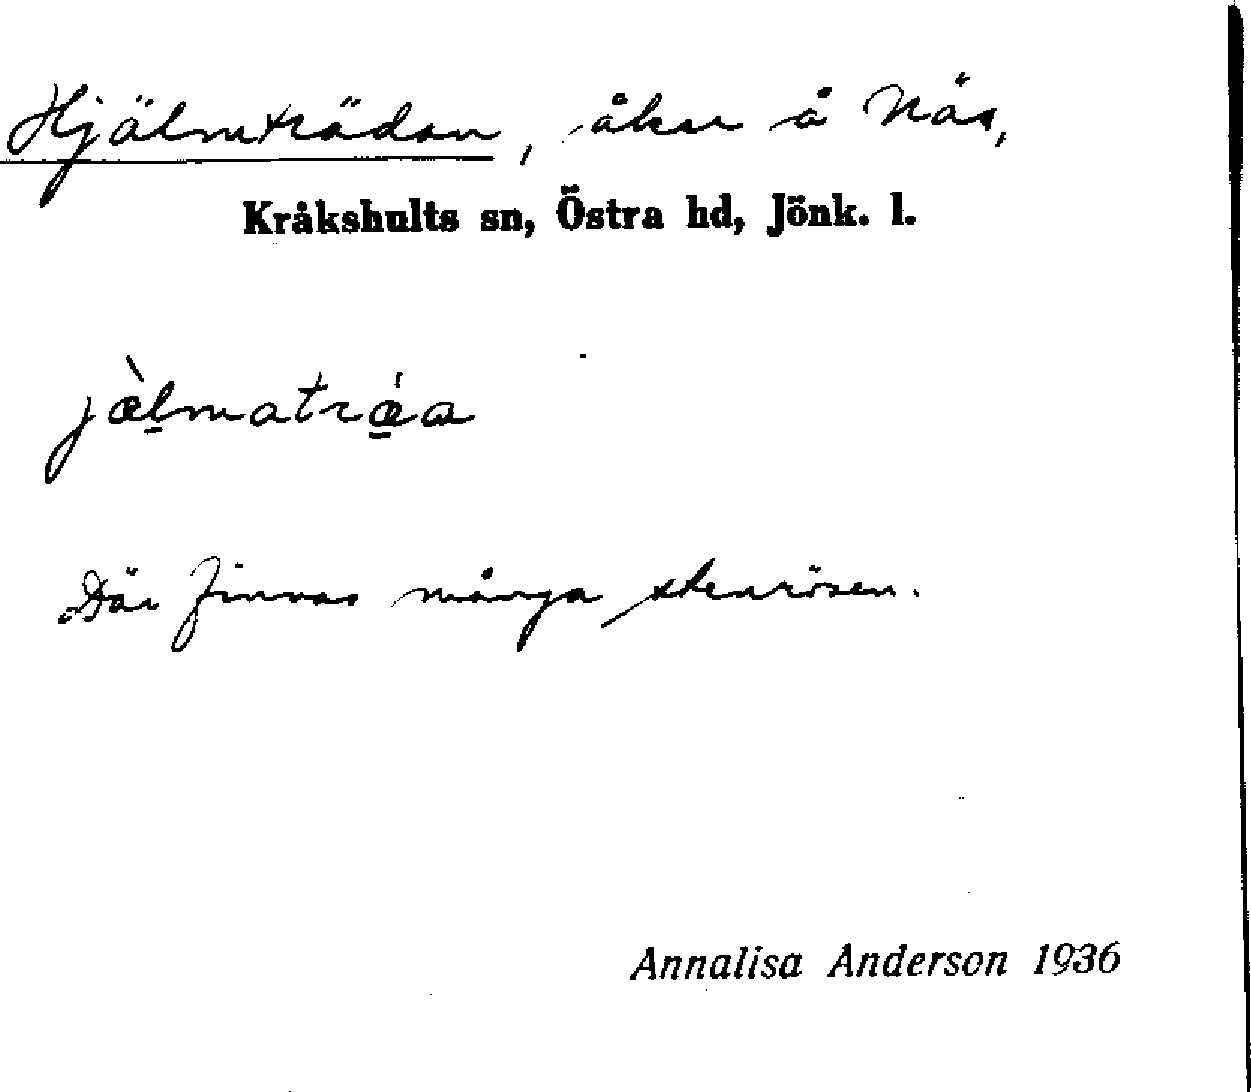 Hjälmträdan, åker å Näs,
Kråkshults sn, Östra hd, Jönk. l.
jæ̀lmatrǽa
Där finnas många stenrösen.
Annalisa Anderson 1936